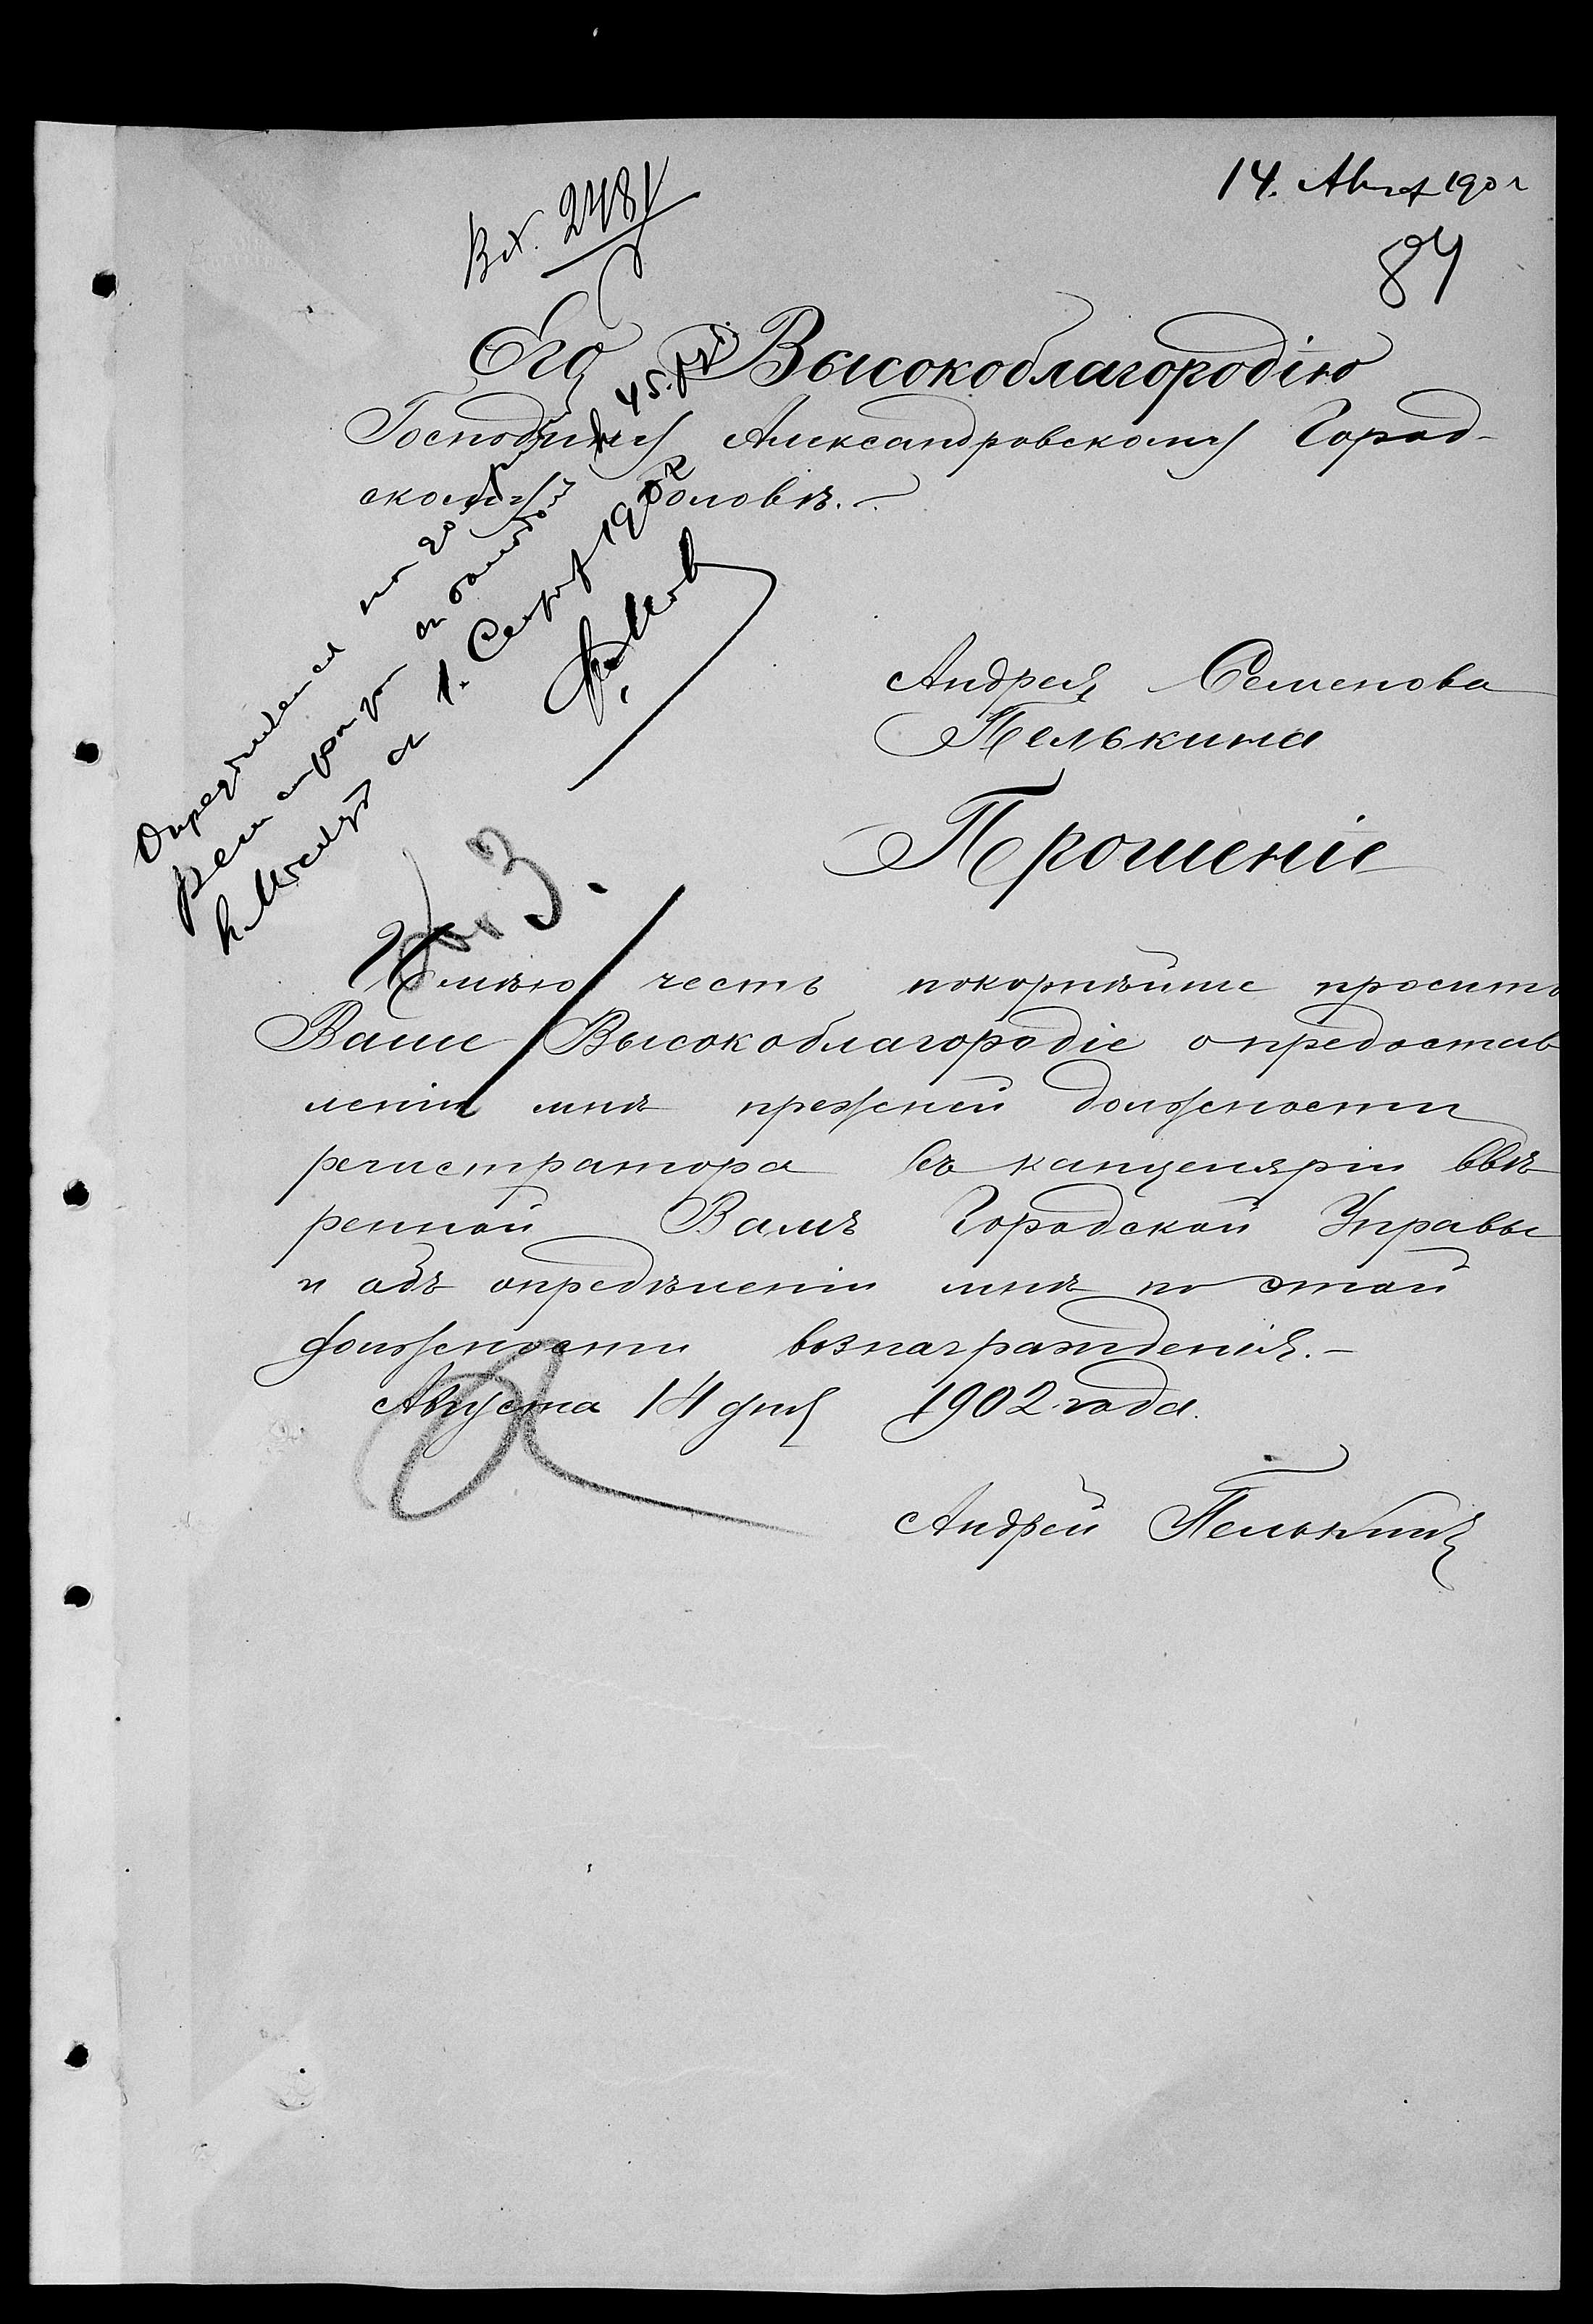 14. Авг 1902
Вх. 2481
84
Его Высокоблагородію
Господину Александровскому Город-
скому Головѣ.-
Определенъ на должность
регистратора
въ месяцъ съ 1. Сент 1902
Андрея Семенова
Пелькина
Прошеніе
3.
Имѣю честь покорнѣйше просить
Ваше Высокоблагородіе о предостав
леніи мнѣ прежней должности
регистратора въ канцеляріи ввѣ
ренной Вамъ Городской Управы
и объ опредѣленіи мнѣ по этой
должности вознагражденія.-
Августа 14 дня 1902 года.
Андрей Пелькинъ